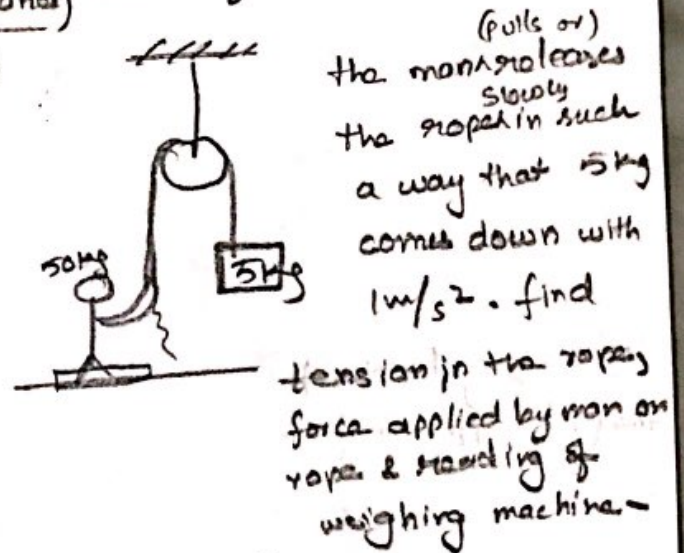 (pulls or)
the man releases
slowly
the rope in such
a way that 5kg
comes down with
1m/s². find
tension in the rope,
force applied by man on
rope & reading of
weighing machine-
50kg
5kg